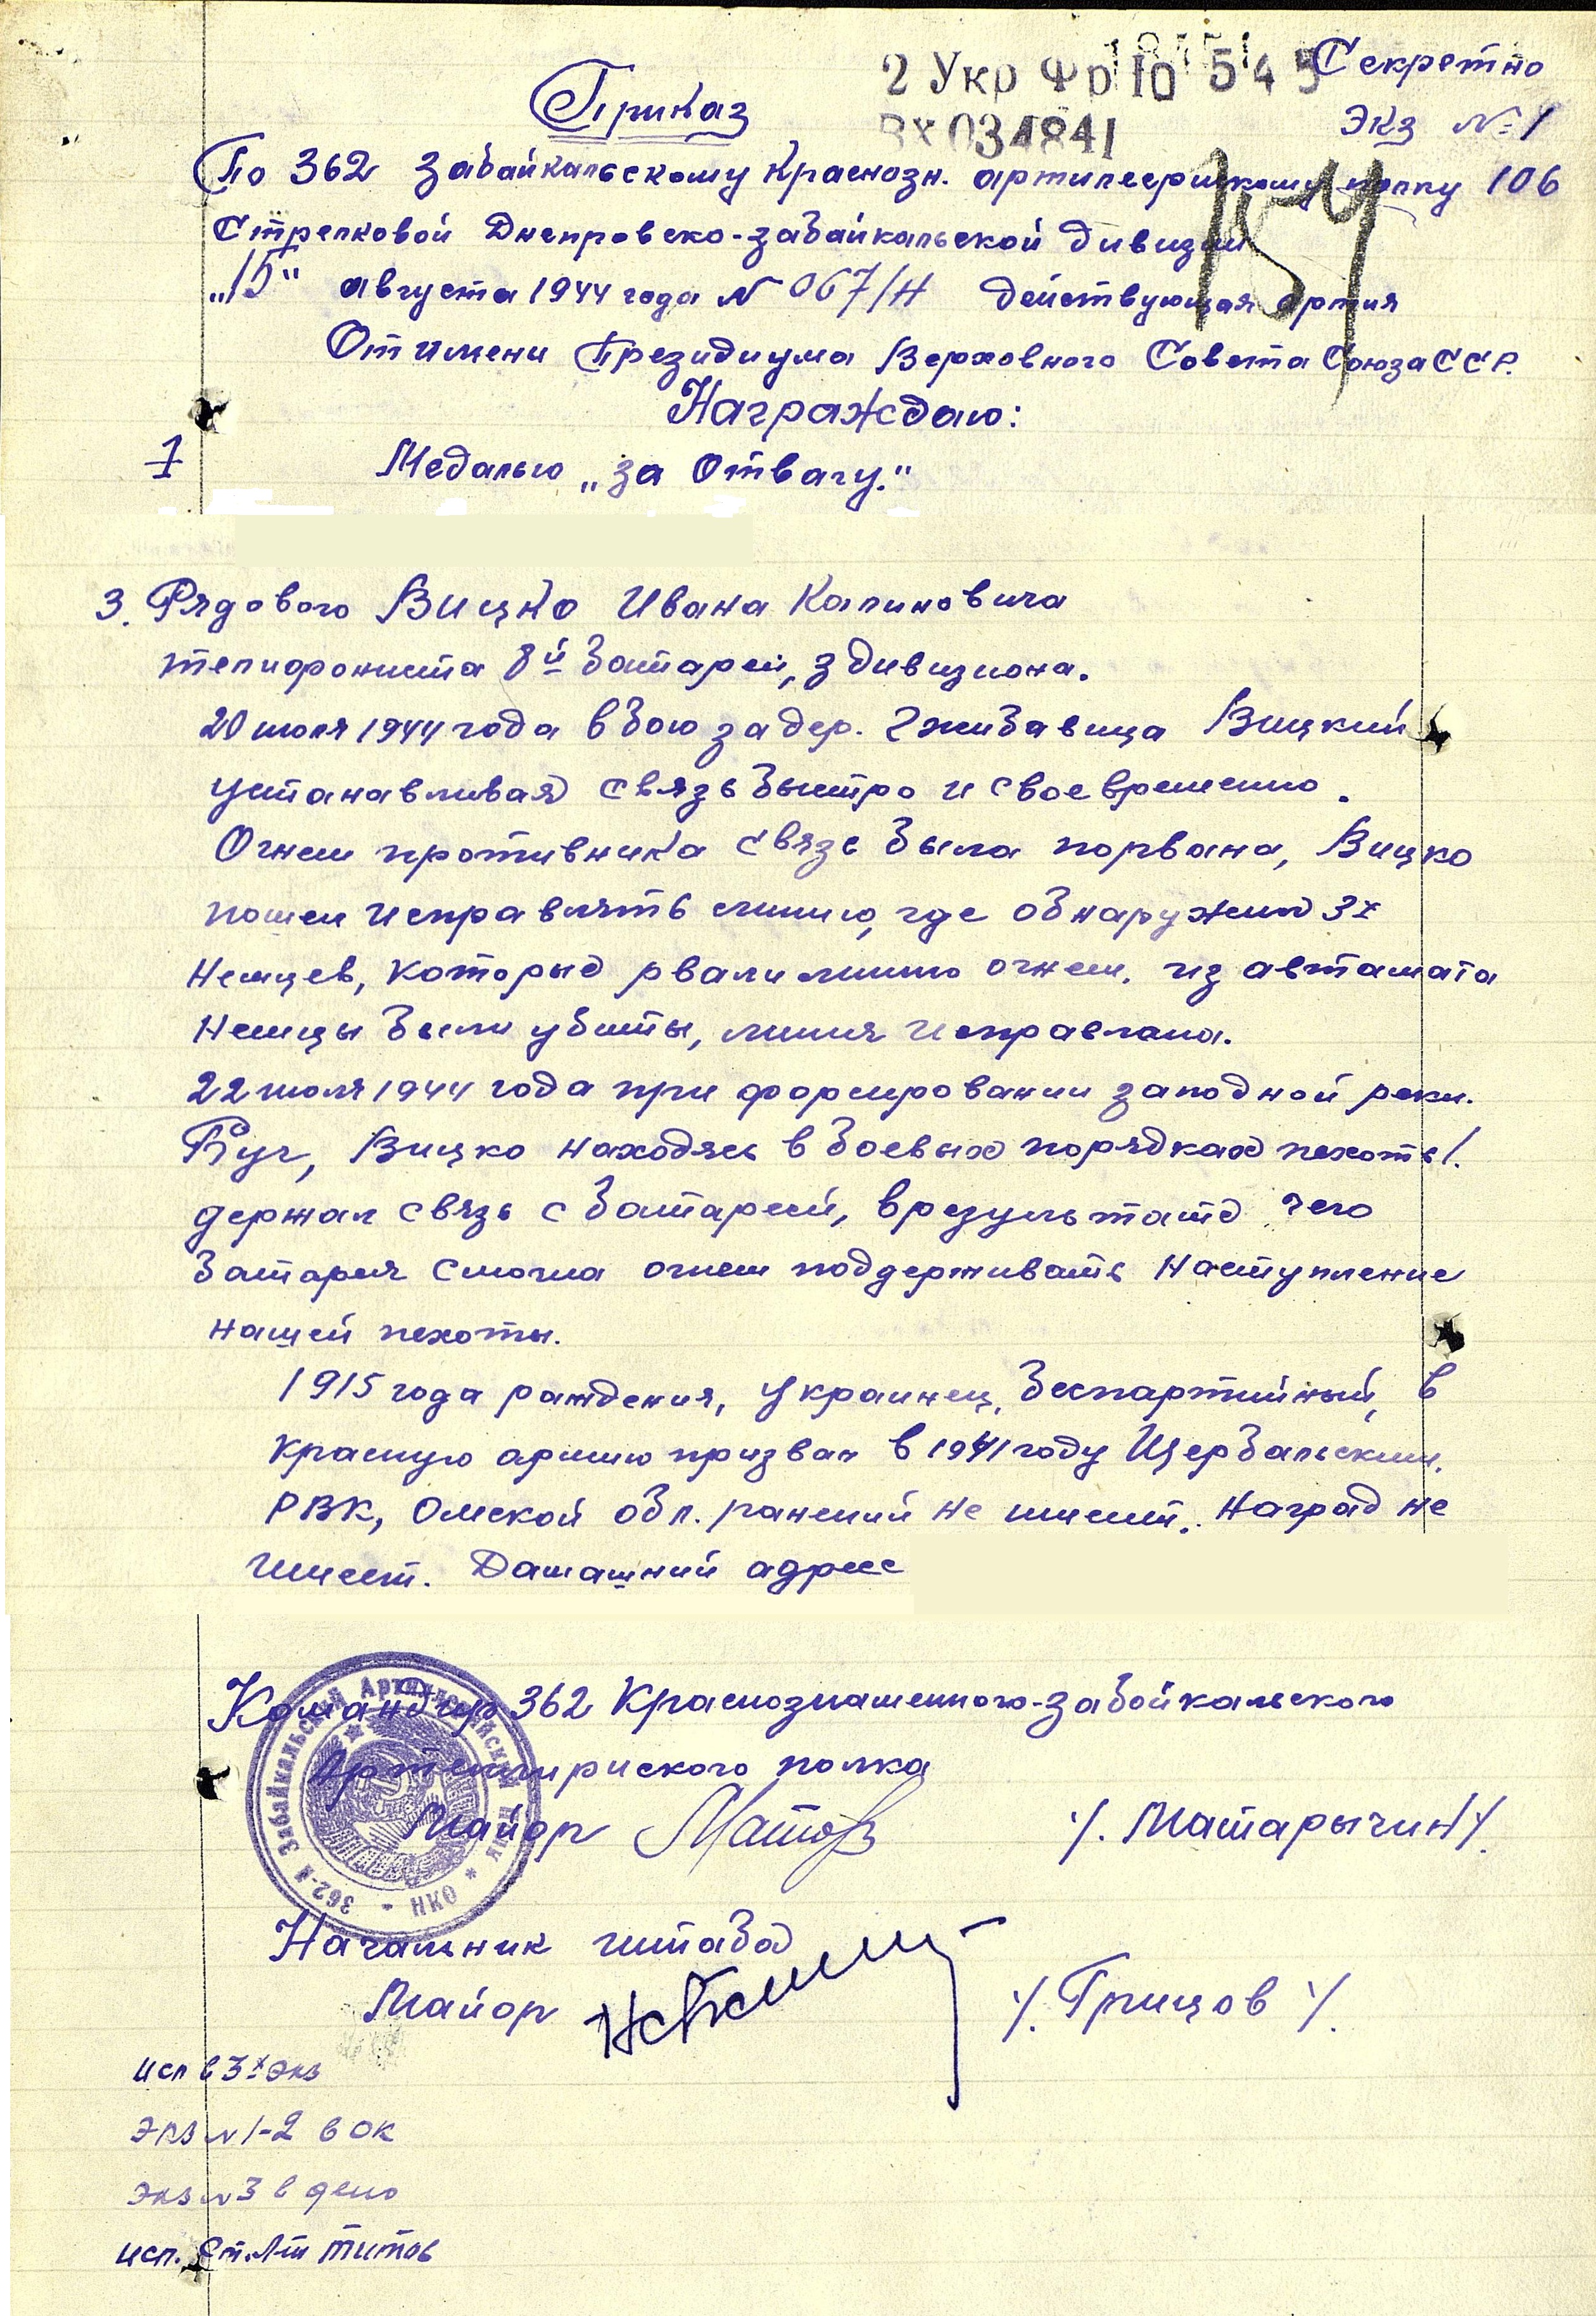 2 Укр Фр 10 5 4 5
Секретно
Вх 034841
экз № 1
Приказ
По 362 Забайкальскому Краснозн. артилеерискому полку 106
Стрелковой Днепровско-забайкальской дивизии
„15“ августа 1944 года № 067/Н действующая армия
От имени Президиума Верховного Совета Союза ССР.
Награждаю:
1 Медалью „за Отвагу."
3. Рядового Вицко Ивана Калиновича
телифониста 8й батареи, 3 дивизиона.
20 июля 1944 года в бою за дер. Гжибавица Вицкий
устанавливая связь быстро и своевременно.
Огнем противника связь была порвана, Вицко
пошел исправлять линию, где обнаружил 3х
Немцев, которые рвали линию огнем. из автамата
Немцы были убиты, линия исправлена.
22 июля 1944 года при форсировании западной реки.
Буг, Вицко находясь в боевых порядках пехоты.
держал связь с батареей, в результате чего
батарея смогла огнем поддерживать Наступление
нашей пехоты.
1915 года раждения, Украинец, беспартийный, в
красную армию призван в 1941 году Щербальским.
РВК, Омской обл. ранений не имеет. Наград не
имеет. Дамашний адрес
Командир 362 Краснознаменного-забойкальского
Артелириского полка
Майор /. Матарычин /.
Начальник штаба
Майор /. Грицов /.
362-й Забайкальский Артиллерийский Полк * НКО -
исп в 3х экз
экз № 1-2 в ОК
экз № 3 в дело
исп. Ст. Л-т Титов